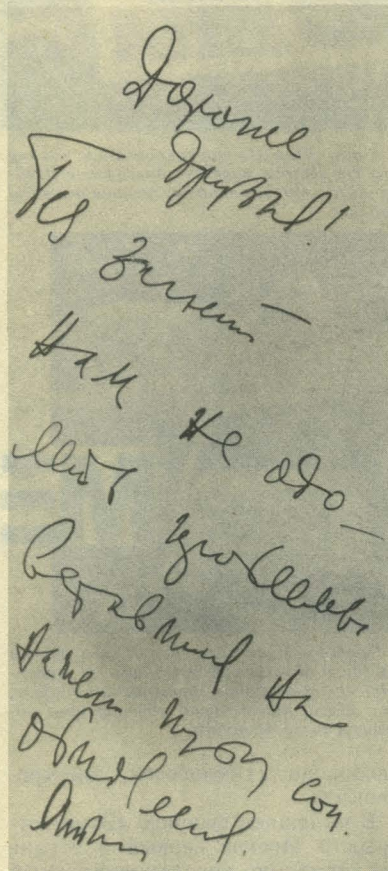 Дорогие
друзья!
Без знаний —
нам не одо—
леть проблемы
вставшие на
нашем пути соц.
обновления.